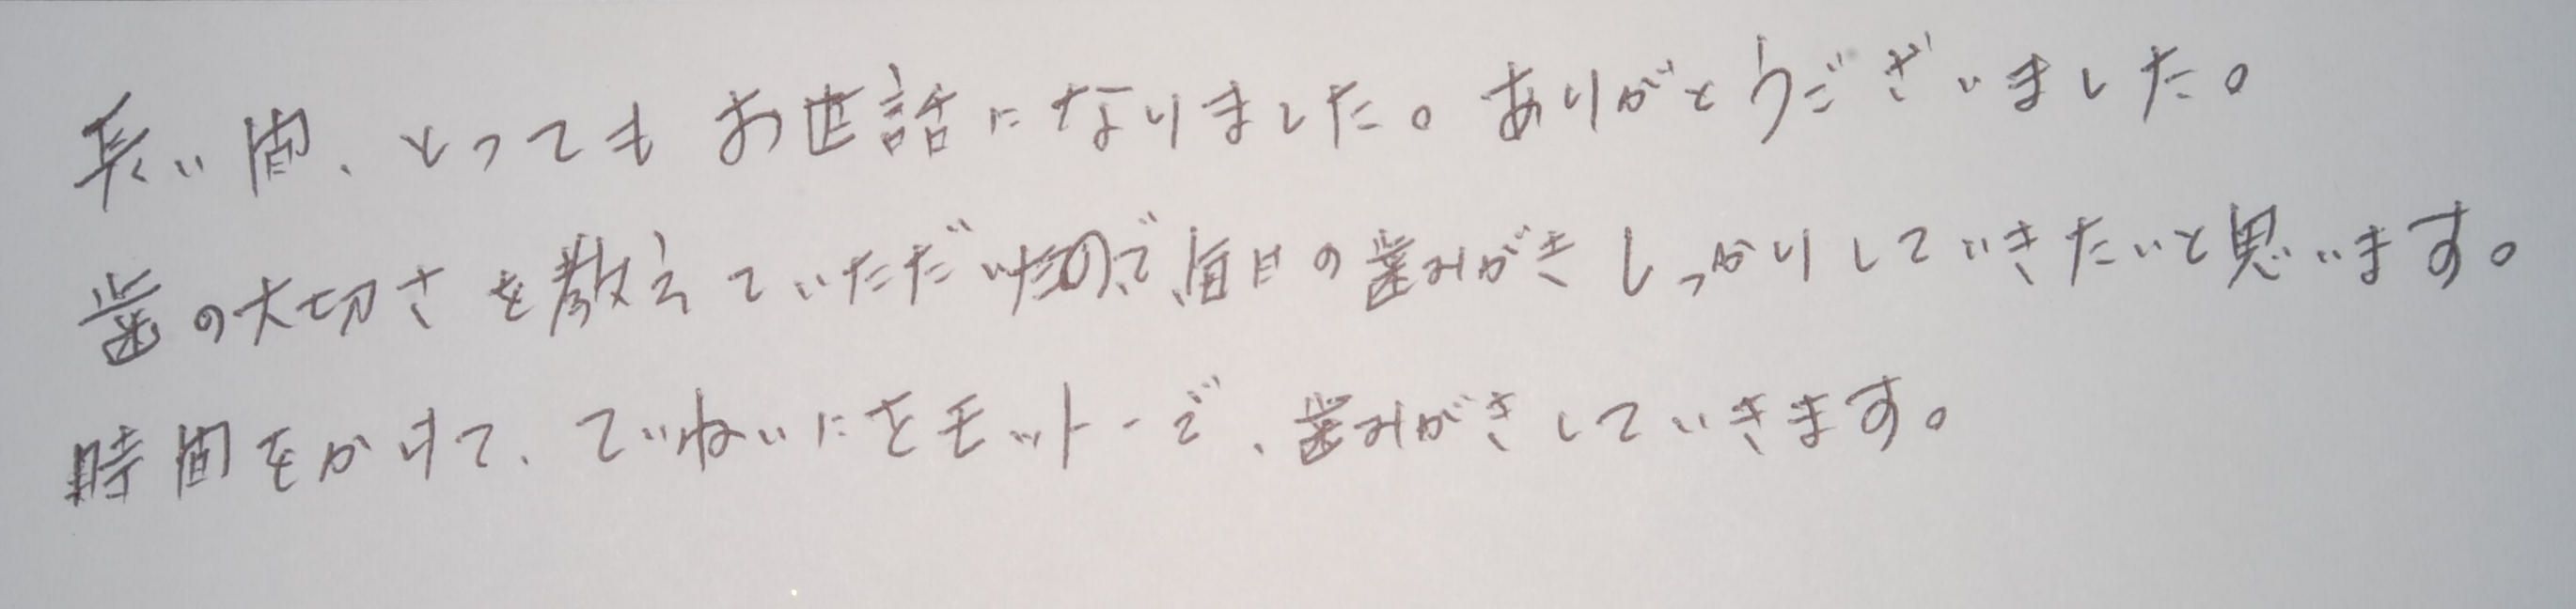 長い間、とってもお世話になりました。ありがとうございました。
歯の大切さを教えていただいたので、毎日の歯みがきしっかりしていきたいと思います。
時間をかけて、ていねいにをモットーで、歯みがきしていきます。